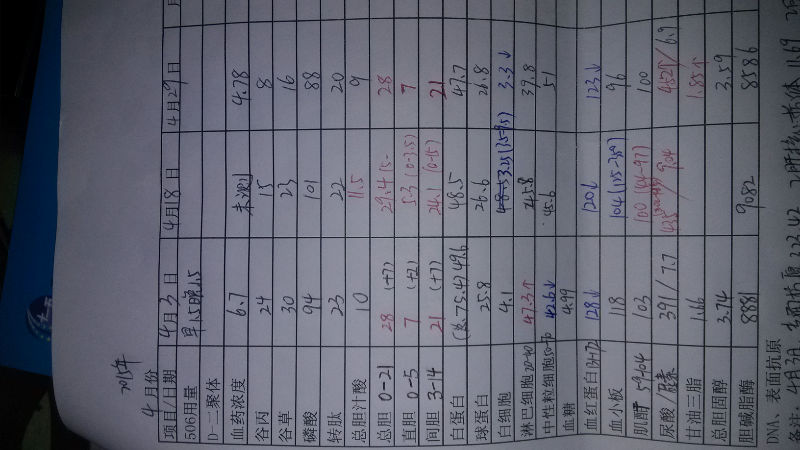 2015年
4月份
项目/日期 4月3日 4月18日 4月29日
506用量 早1.5晚1.5
D-二聚体
血药浓度 6.7 未测 4.78
谷丙 24 15 8
谷草 30 23 16
磷酸 94 101 88
转肽 23 22 20
总胆汁酸 10 11.5 9
总胆 0-21 28 (+7) 29.4 28
直胆 0-5 7 (+2) 5.3 (0-3.5) 7
间胆 3-14 21 (+7) 24.1 (0-15) 21
白蛋白 (总75.4) 49.6 48.5 47.7
球蛋白 25.8 26.6 26.8
白细胞 4.1 3.23 (3.5-9.5) 3.3↓
淋巴细胞 20-40 47.3↑ 45.8 39.8
中性粒细胞 50-70 42.6↓ 45.6 51
血糖 4.99
血红蛋白 131-172 128↓ 120↓ 123↓
血小板 118 104 (125-350) 96
肌酐 59-104 103 100 (44-97) 100
尿酸/尿素 391/7.7 435/9.04 452↑/6.9
甘油三脂 1.66 1.85↑
总胆固醇 3.74 3.59
胆碱脂酶 8881 9082 8586
DNA、表面抗原
备注：4月3日，表面抗原